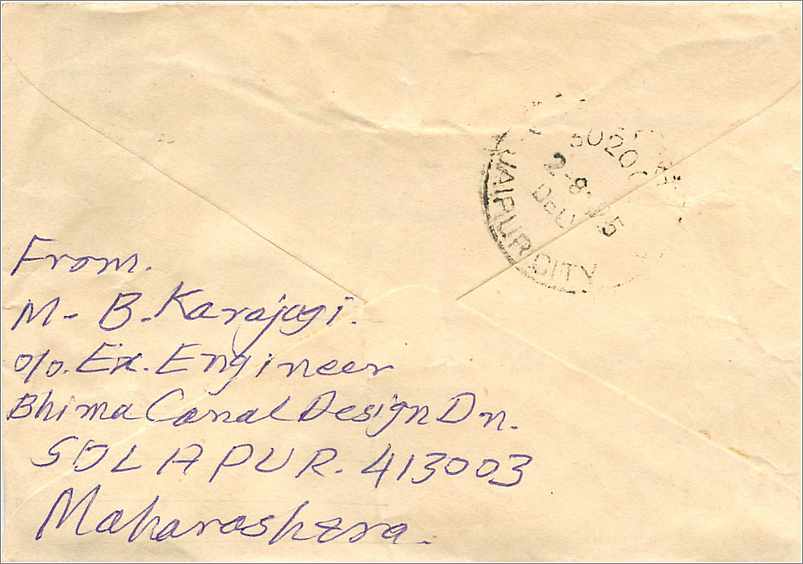 JAIPUR CITY
DELY
From.
M- B. Karajagi.
O/o. Ex. Engineer
Bhima Canal Design Dn.
SOLAPUR. 413003
Maharashtra.